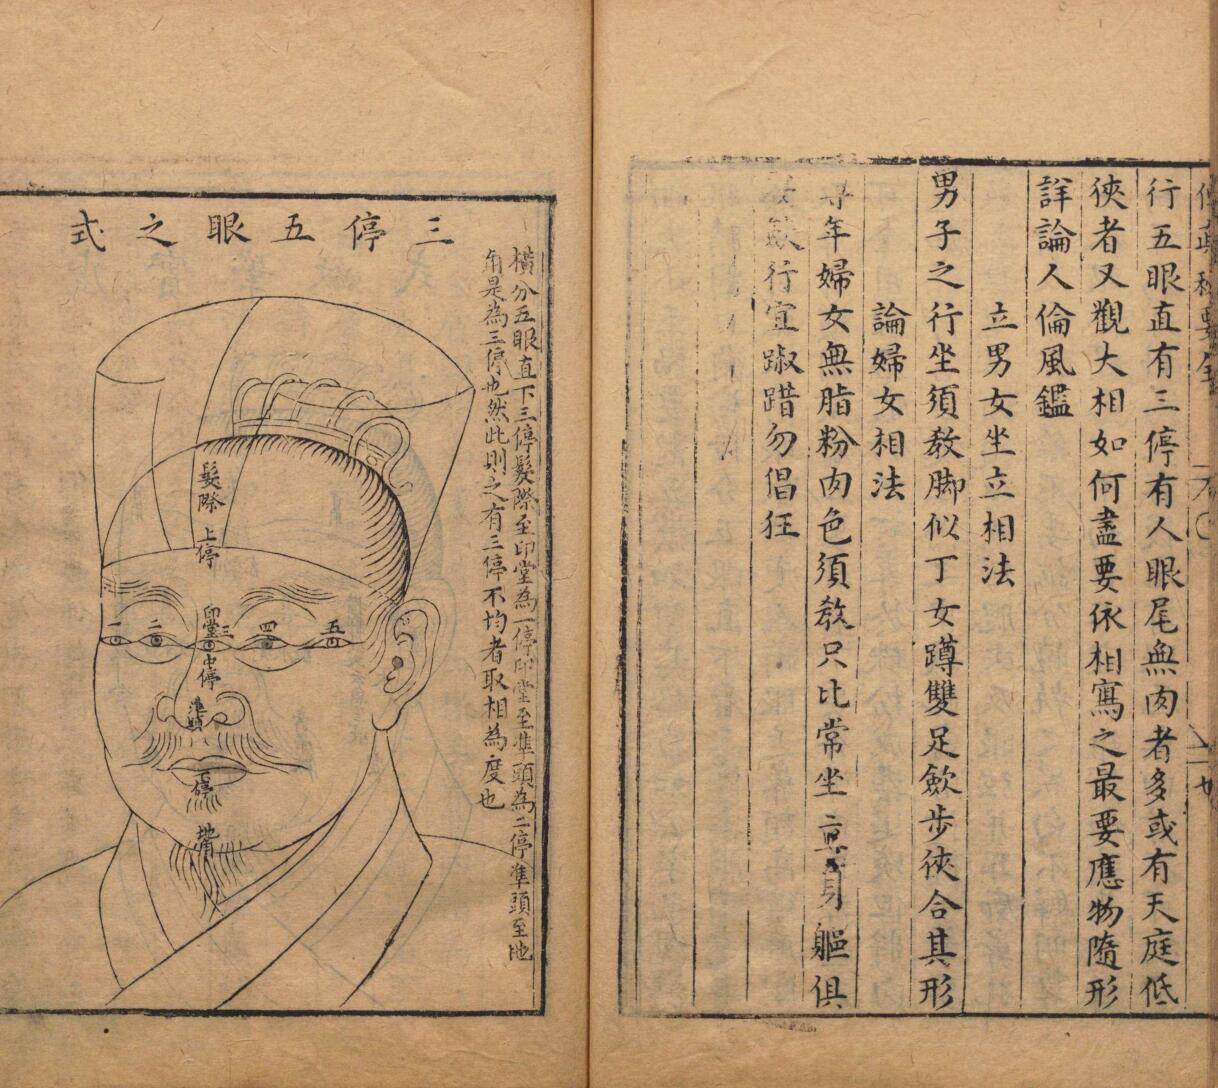 行五眼直有三停有人眼尾無肉者多或有天庭低
狹者又觀大相如何盡要依相寫之最要應物隨形
詳論人倫風鑑
立男女坐立相法
男子之行坐須教脚似丁女蹲雙足歛步俠合其形
論婦女相法
年婦女無脂粉肉色須教只比常坐身軀俱
歛行宜踧踖勿倡狂
三停五眼之式
橫分五眼直下三停髮際至印堂為一停印堂至準頭為二停準頭至地
角是為三停也然此則之有三停不均者取相為度也
髮際
上停
印堂
一
二
三
四
五
中停
準頭
下停
地角